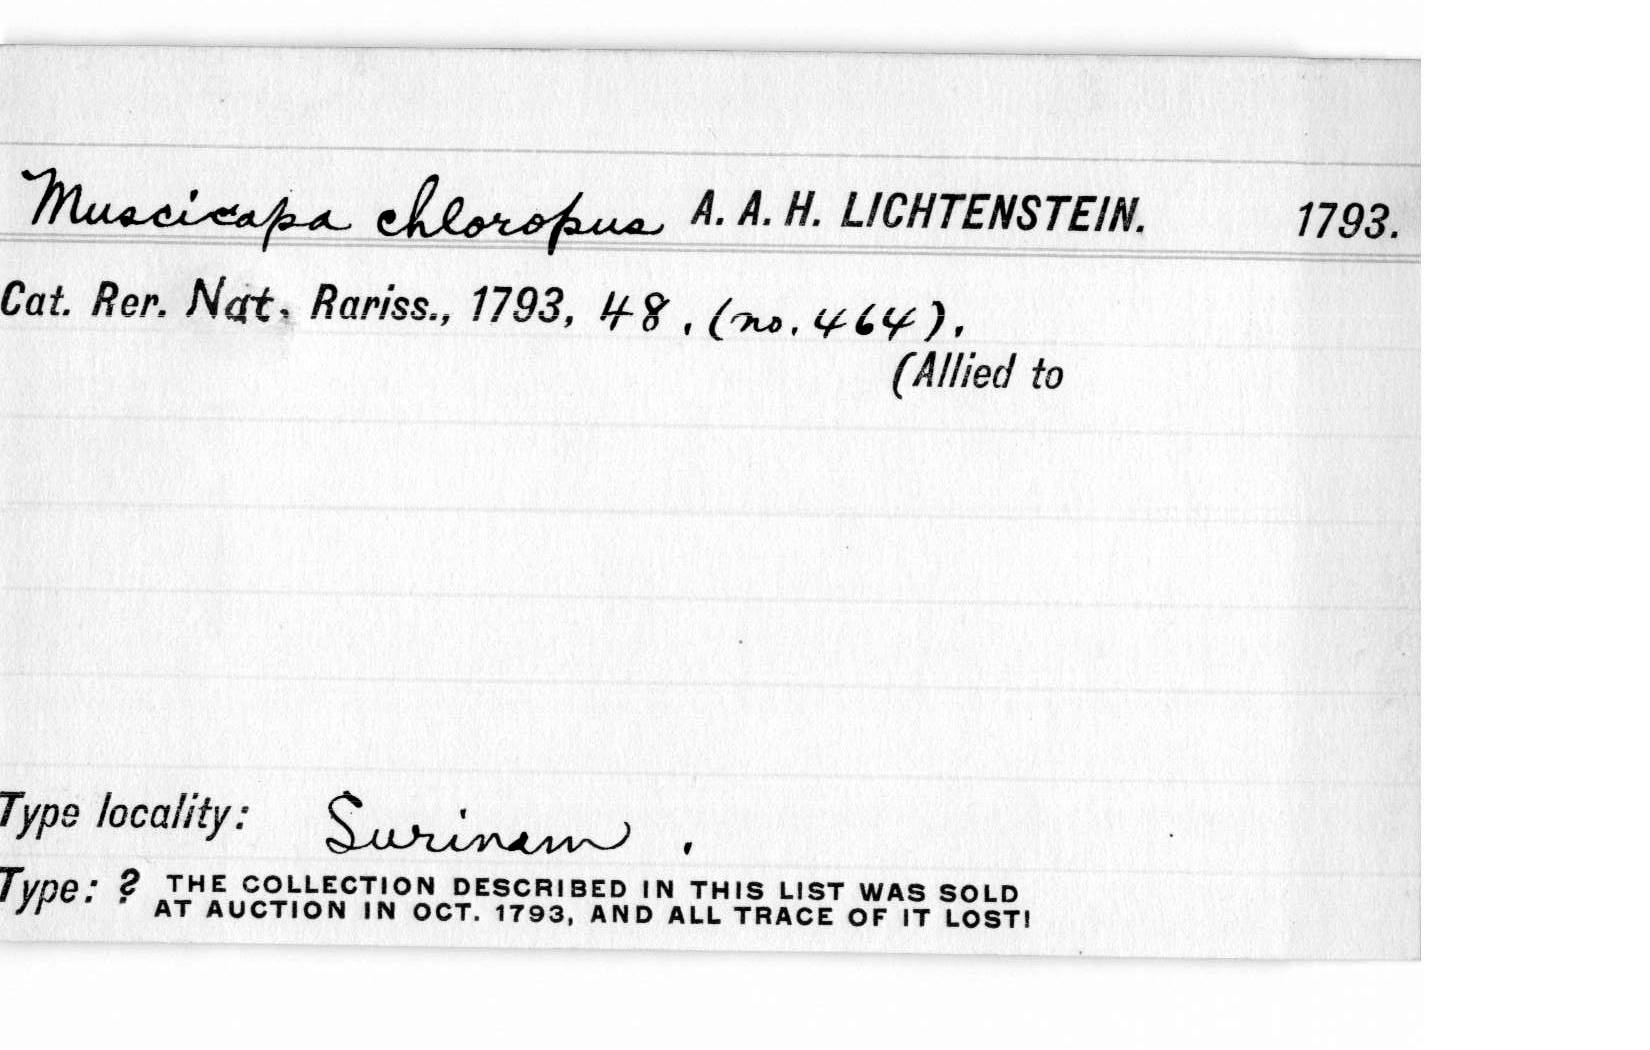 Muscicapa chloropus A. A. H. LICHTENSTEIN. 1793.
Cat. Rer. Nat. Rariss., 1793, 48, (no. 464).
(Allied to
Type locality: Surinam.
Type: ? THE COLLECTION DESCRIBED IN THIS LIST WAS SOLD
AT AUCTION IN OCT. 1793, AND ALL TRACE OF IT LOST!